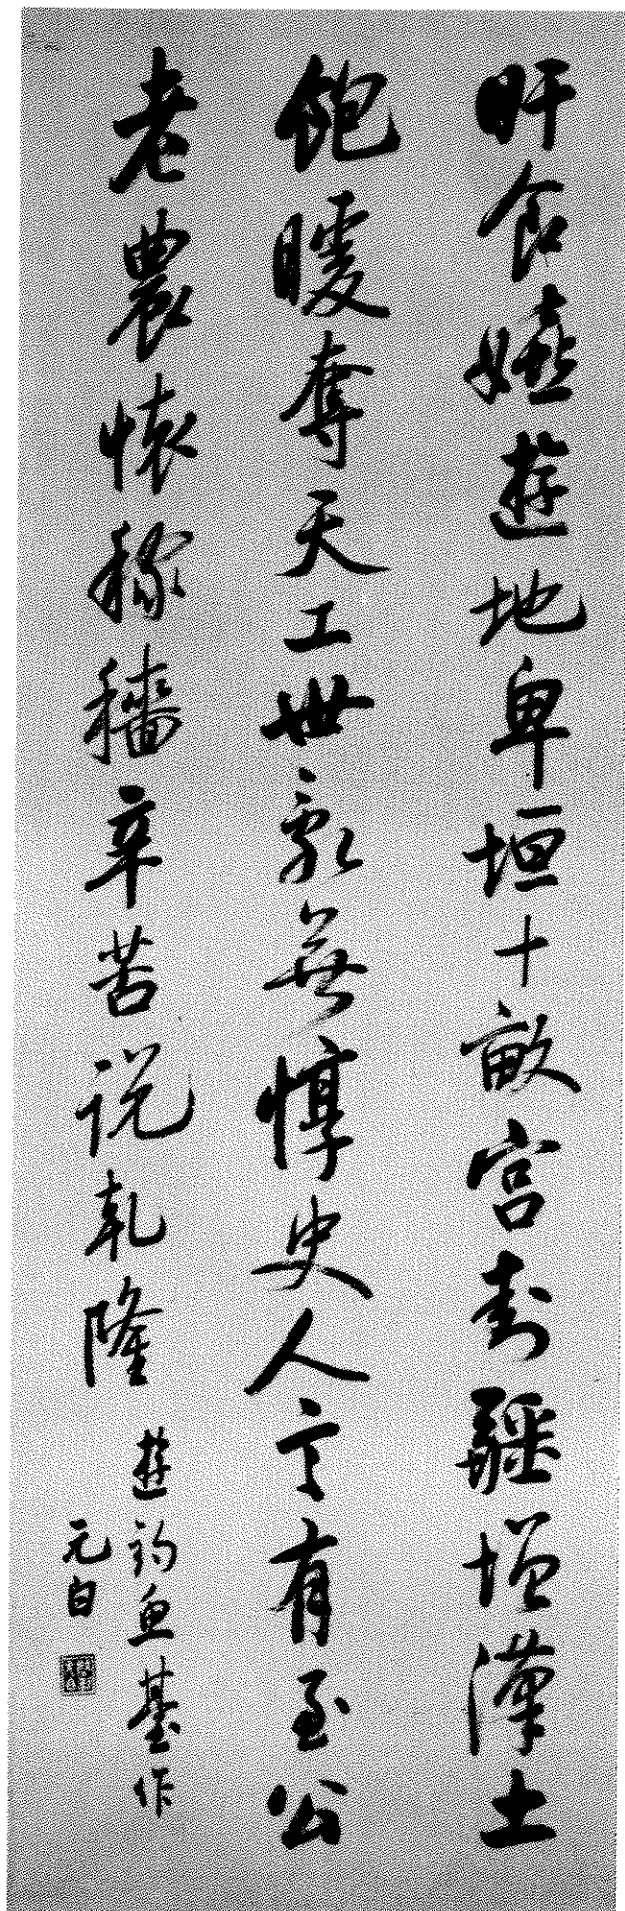 旰食嬉遊地卑垣十畝宮封疆增漢土
飽暖奪天工世亂無惇史人言有至公
老農懷稼穡辛苦説乾隆
遊釣魚臺作
元白